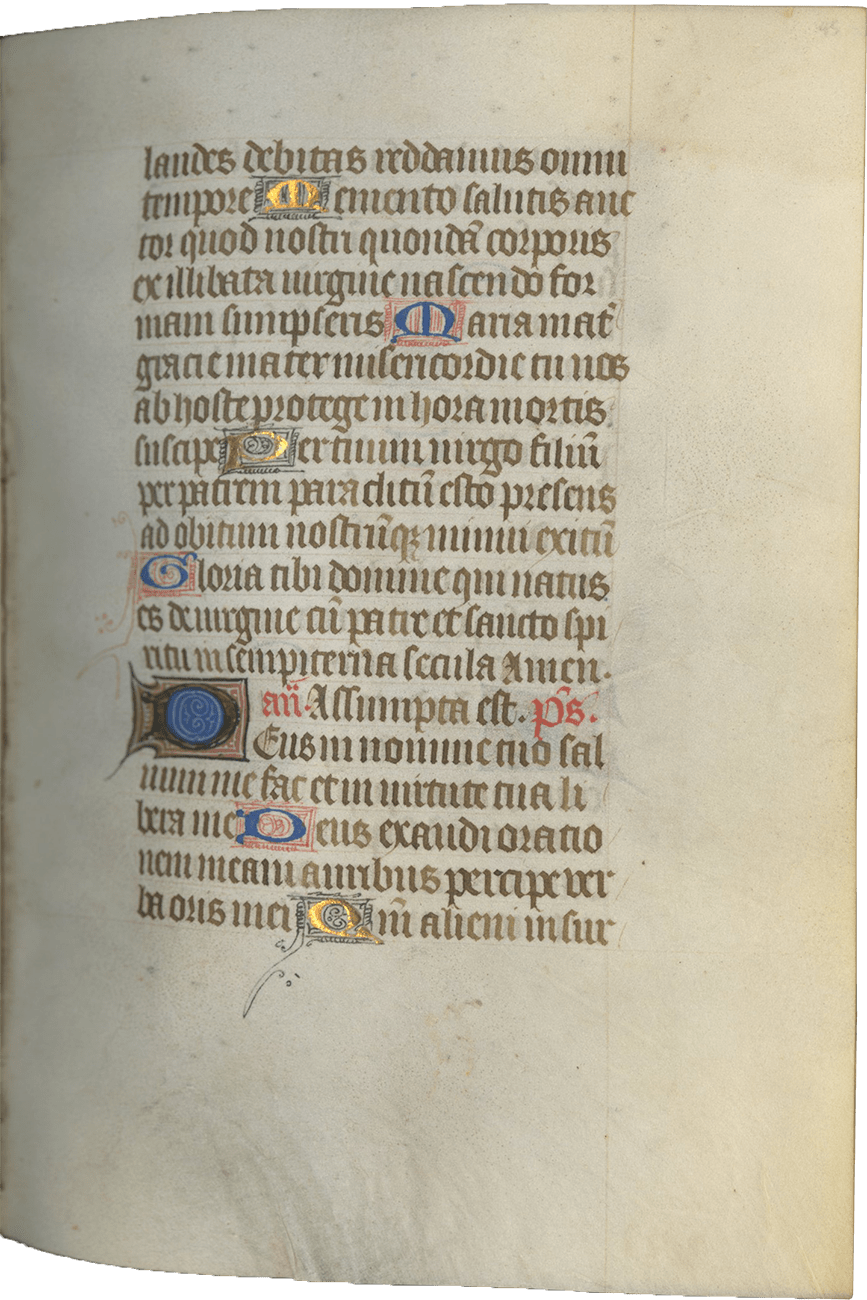 laudes debitas reddamus omni
tempore Memento salutis auc
tor quod nostri quondā corporis
ex illibata uirgine nascendo for
mam sumpseris Maria mat̄
gracie mater misericordie tu nos
ab hoste protege in hora mortis
suscipe Per tuum uirgo filiū
per patrem paraclitū esto presens
ad obitum nostrūqꝫ muniui exitū
Gloria tibi domine qui natus
es de uirgine cū patre et sancto spi
ritu in sempiterna secula Amen.
an̄. Assumpta est. p̄s.
DEus in nomine tuo sal
uum me fac et in uirtute tua li
bera me Deus exaudi oratio
nem meam auribus percipe ver
ba oris mei Qm̄ alieni insur